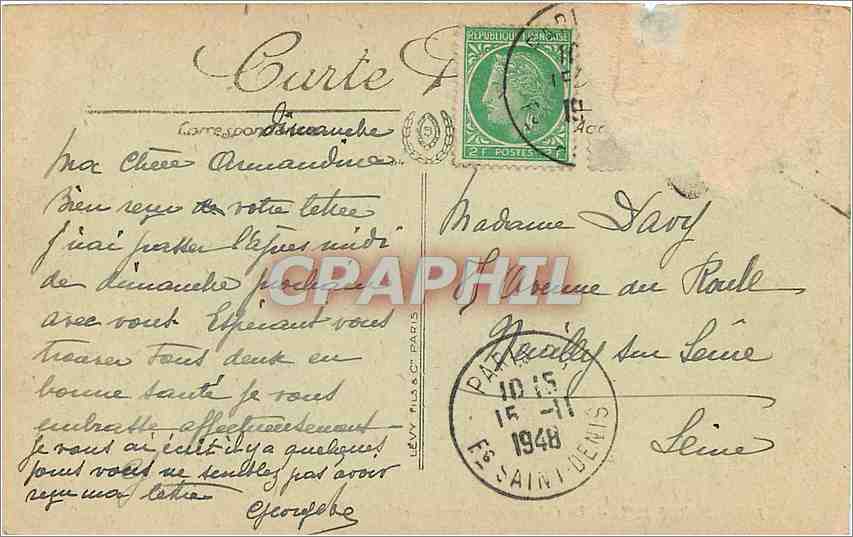 Carte
Correspondance
Dimanche
Ma chère Armandine
Bien reçu votre lettre
J'irai passer l'après midi
de dimanche prochain
avec vous. Espérant vous
trouver tous deux en
bonne santé je vous
embrasse affectueusement
je vous ai écrit il y a quelques
jours vous ne semblez pas avoir
reçu ma lettre
LÉVY FILS & Cie PARIS
REPUBLIQUE FRANÇAISE
2F POSTES 2F
Madame Davy
Avenue du Roule
Neuilly sur Seine
Seine
PARIS
10 15
15 -11
1948
Fg SAINT-DENIS
CPAPHIL